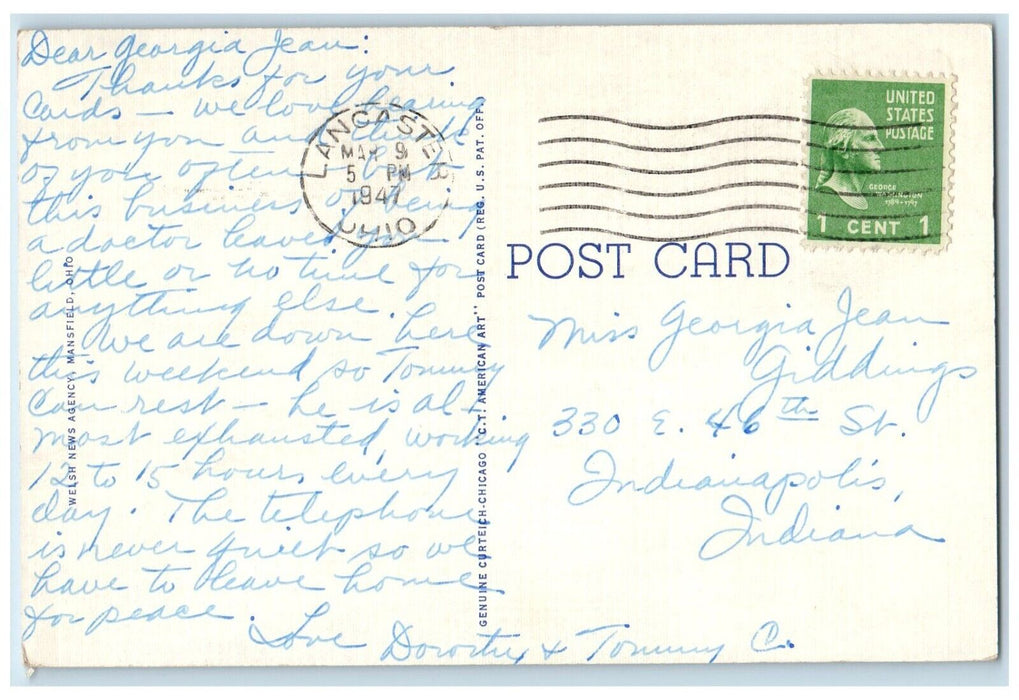 Dear Georgia Jean:
Thanks for your
cards – we love hearing
from you and think
of you often – but
this business of being
a doctor leaves you
little or no time for
anything else.
We are down here
this weekend so Tommy
can rest – he is al-
most exhausted, working
12 to 15 hours every
day. The telephone
is never quiet so we
have to leave home
for peace.
Love Dorothy & Tommy C.
WELSH NEWS AGENCY, MANSFIELD, OHIO
GENUINE CURTEICH-CHICAGO "C.T. AMERICAN ART" POST CARD (REG. U.S. PAT. OFF.
LANCASTER
MAR 9
5 PM
1947
OHIO
UNITED
STATES
POSTAGE
GEORGE
WASHINGTON
1789-1797
1 CENT 1
POST CARD
Miss Georgia Jean
Giddings
330 E. 46th St.
Indianapolis,
Indiana